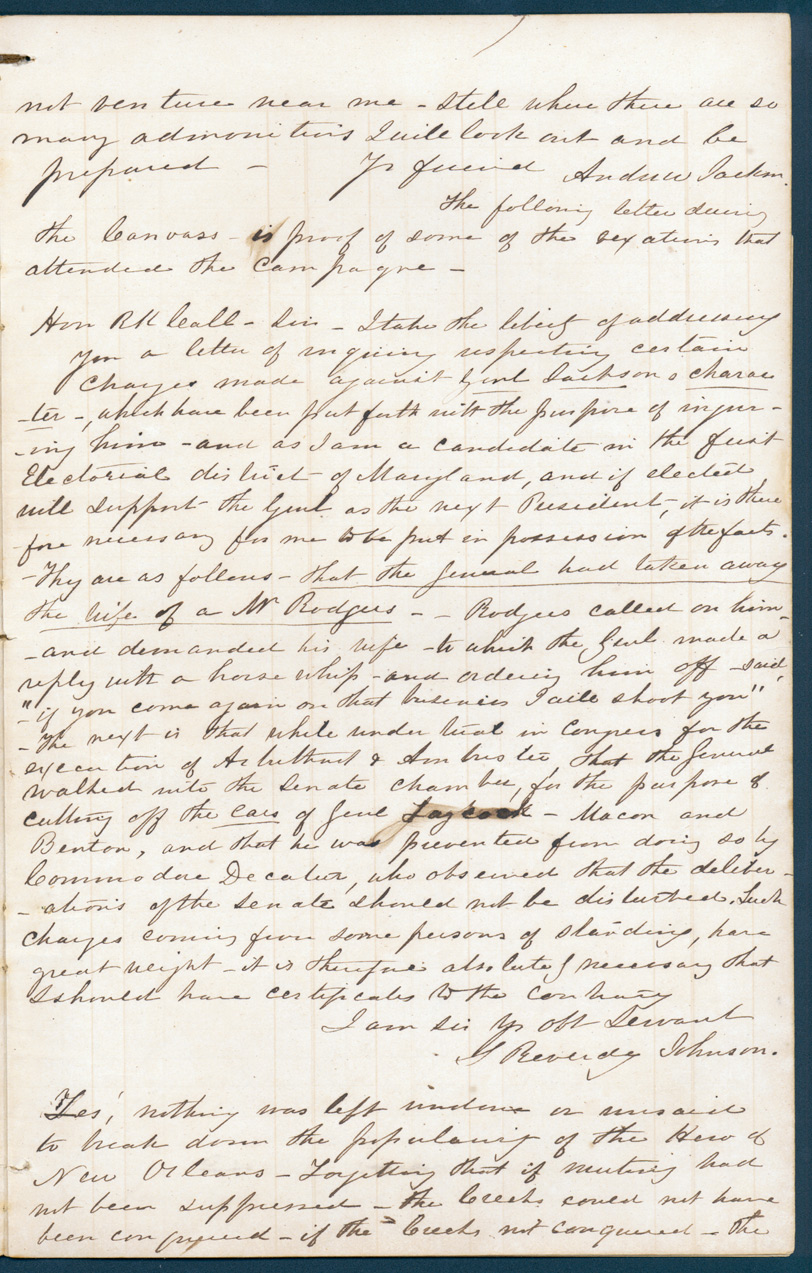 not venture near me - still where there are so
many admonitions I will look out and be
prepared - Yr friend Andrew Jackson.
The following letter during
the Canvass - is proof of some of the vexations that
attended the campagne -
Hon RK Call - Sir - I take the liberty of addressing
you a letter of inquiry respecting certain
charges made against Genl Jacksons charac
-ter -, which have been put forth with the purpose of injur-
-ing him - and as I am a candidate in the first
Electorial district of Maryland, and if elected
will support the Genl as the next President, it is there
fore necessary for me to be put in possession of the facts.
- They are as follows - that the General had taken away
the wife of a Mr Rodgers - - Rodgers called on him -
- and demanded his wife - to which the Genl made a
reply with a horse whip - and ordering him off - said,
"if you come again on that business I will shoot you"
- The next is that while under trial in Congress for the
execution of Arbuthnot & Ambrister, that the General
walked into the Senate chamber, for the purpose of
cutting off the ears of Genl Laycock - Macon and
Benton, and that he was prevented from doing so by
Commodore Decatur, who observed that the deliber-
- ations of the senate should not be disturbed. Such
charges coming from some persons of standing, have
great weight - it is therefore absolutely necessary that
I should have certificates to the contrary
I am sir yr obt Servant
S Reverdy Johnson.
Yes, nothing was left undone or unsaid
to break down the popularity of the Hero of
New Orleans - Forgetting that if mutiny had
not been suppressed - the Creeks could not have
been conquered - if the Creeks not conquered - the